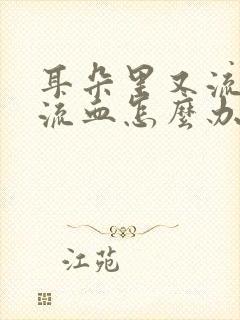 耳朵里又流
流血怎麼办
江苑